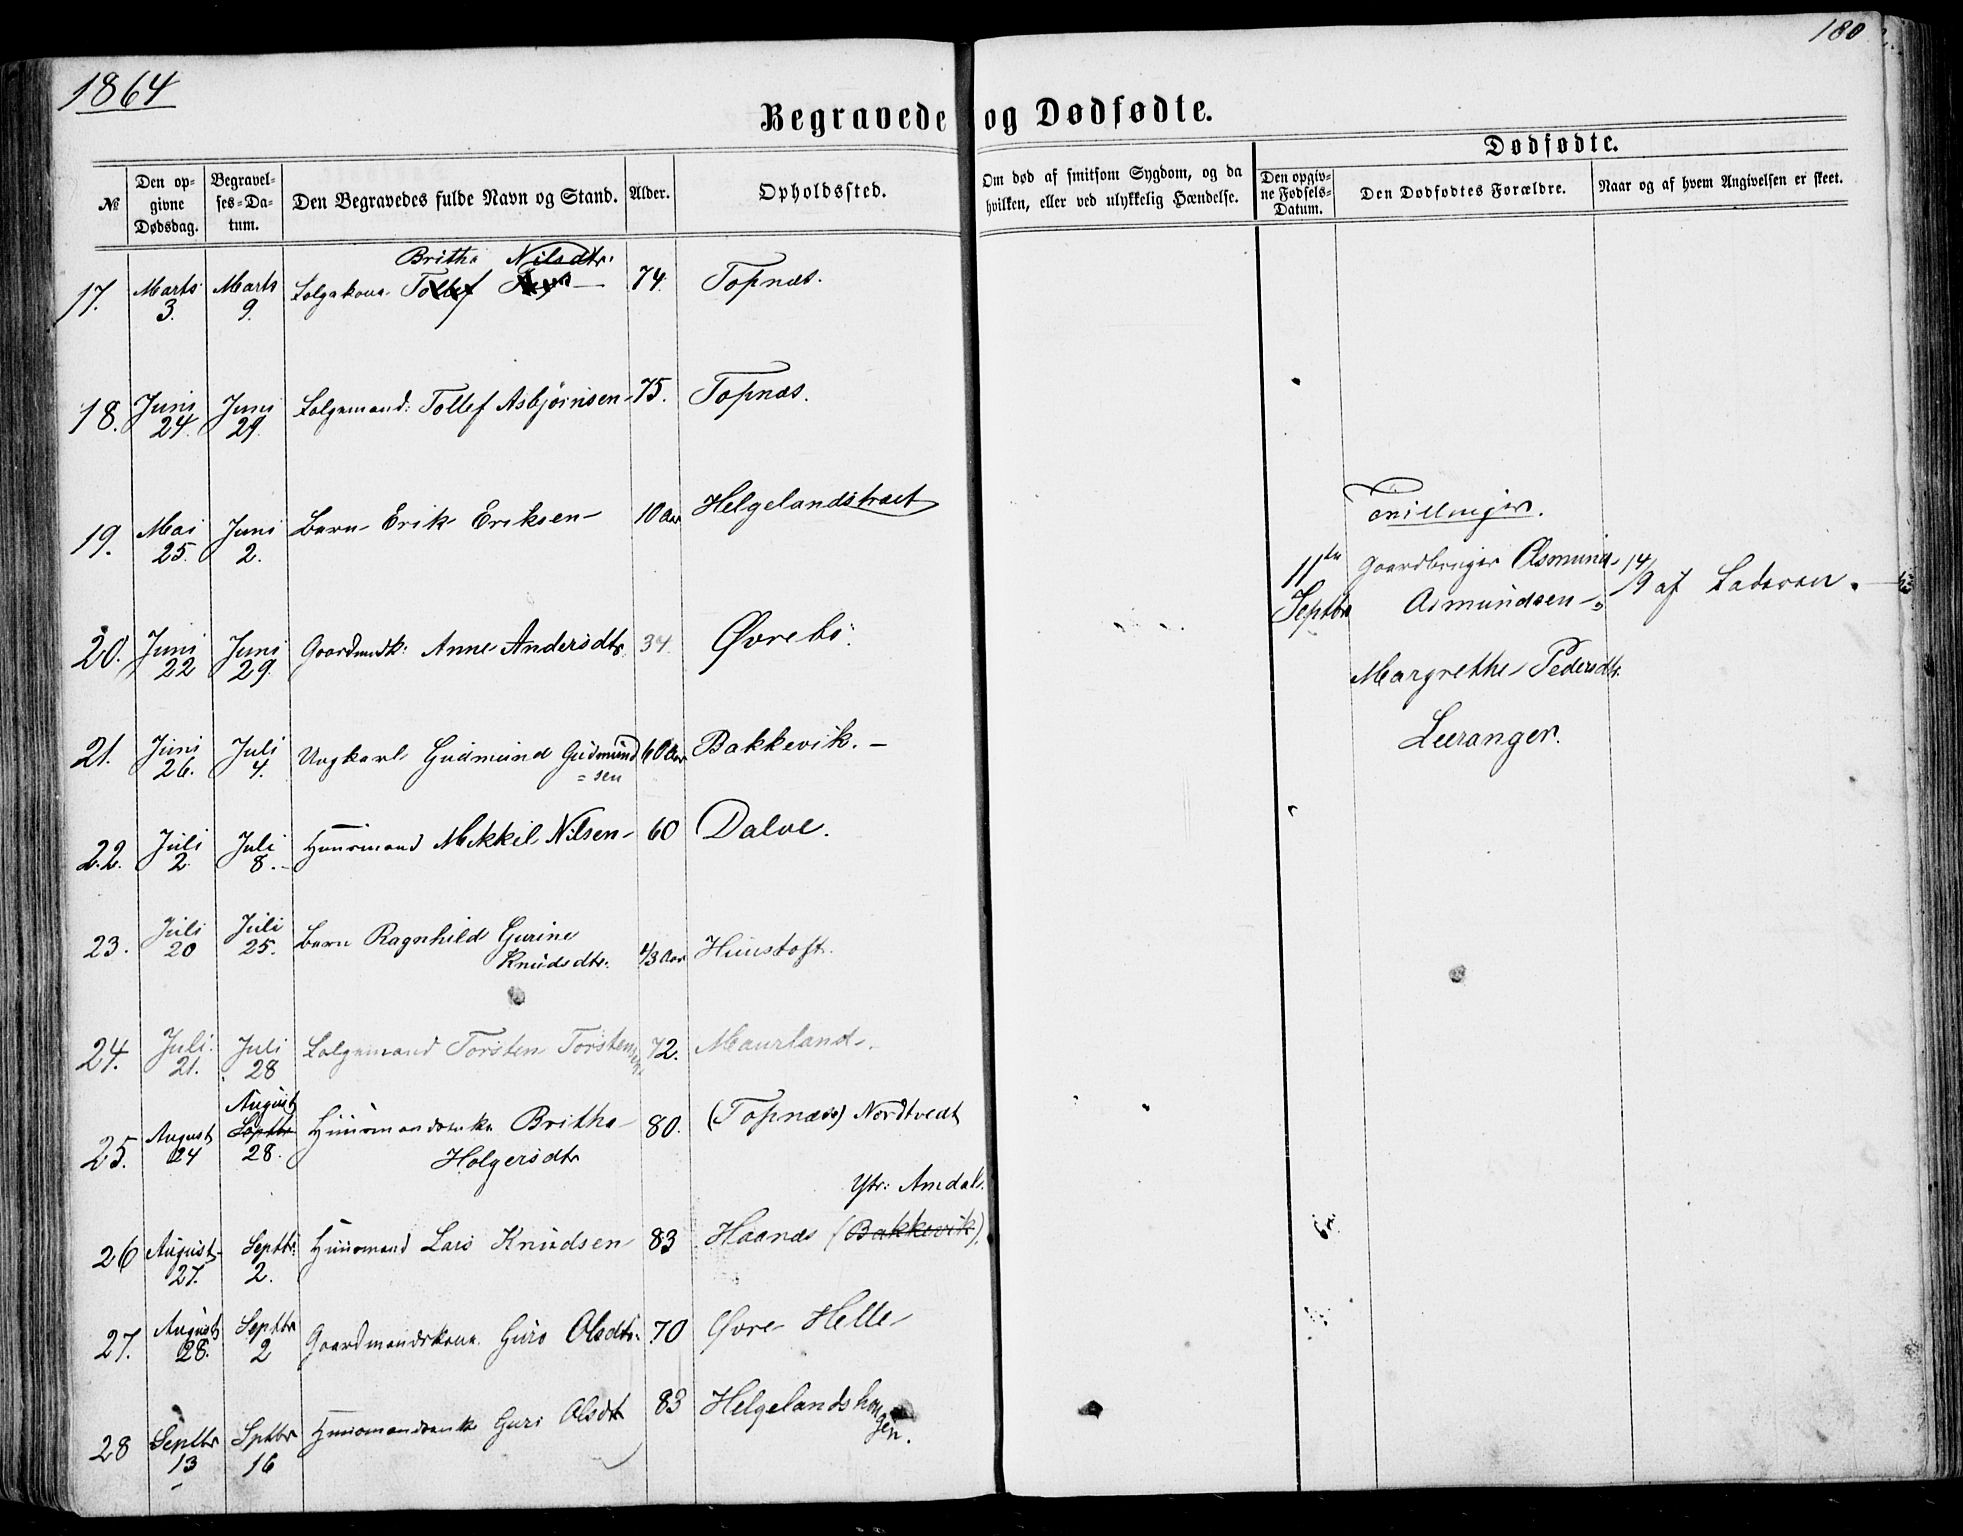 180
1864
Begravede og Dødfødte.
Dødfødte.
№
Den opgivne Dødsdag.
Begravelses-Datum.
Den Begravedes fulde Navn og Stand.
Alder.
Opholdssted.
Om død af smitsom Sygdom, og da hvilken, eller ved ulykkelig Hændelse.
Den opgivne Fødsels-Datum.
Den Dødfødtes Forældre.
Naar og af hvem Angivelsen er skeet.
Britha Nilsdtr.
17. Marts 3. Marts 9. Folgekone Tollef 74. Topnæs.
18. Juni 24. Juni 29. Folgemand: Tollef Asbjörnsen 75. Topnæs.
19. Mai 25. Juni 2. Barn Erik Eriksen 10 Aar Helgelandstræt
20. Juni 22 Juni 29. Gaardmdk: Anne Andersdtr 34 Øvrebö.
21. Juni 26. Juli 4. Ungkarl Gudmund Gudmund
=sen 60 Aar Bakkevik.
22. Juli 2. Juli 8. Huusmand Mikkil Nilsen 60 Dalve.
23. Juli 20 Juli 25. Barn Ragnhild Gurine
Knudsdtr. 4/3 Aar Huustoft.
24. Juli 21. Juli 28 Folgemand Torsten Torstensen 72. Maurland.
25. August 24 August Septbr 28. Huusmandsenke Britha
Holgersdtr 80. (Topnæs) Nordtvedt
Ytr: Amdal.
26 August 27. Septbr. 2. Huusmand Lars Knudsen 83 Haanæs (Bakkevik).
27. August 28. Septbr 2 Gaardmandskone Guro Olsdtr. 70 Øvre Helle
28 Septbr 13 Sptbr 16 Huusmandsenke Guri Olsdt 83 Helgelandshaugen.
Tvillinger.
11te Septbr Gaardbruger Asmund
Asmundsen 14/9 af Faderen.
Margrethe Pedersdtr.
Leeranger.